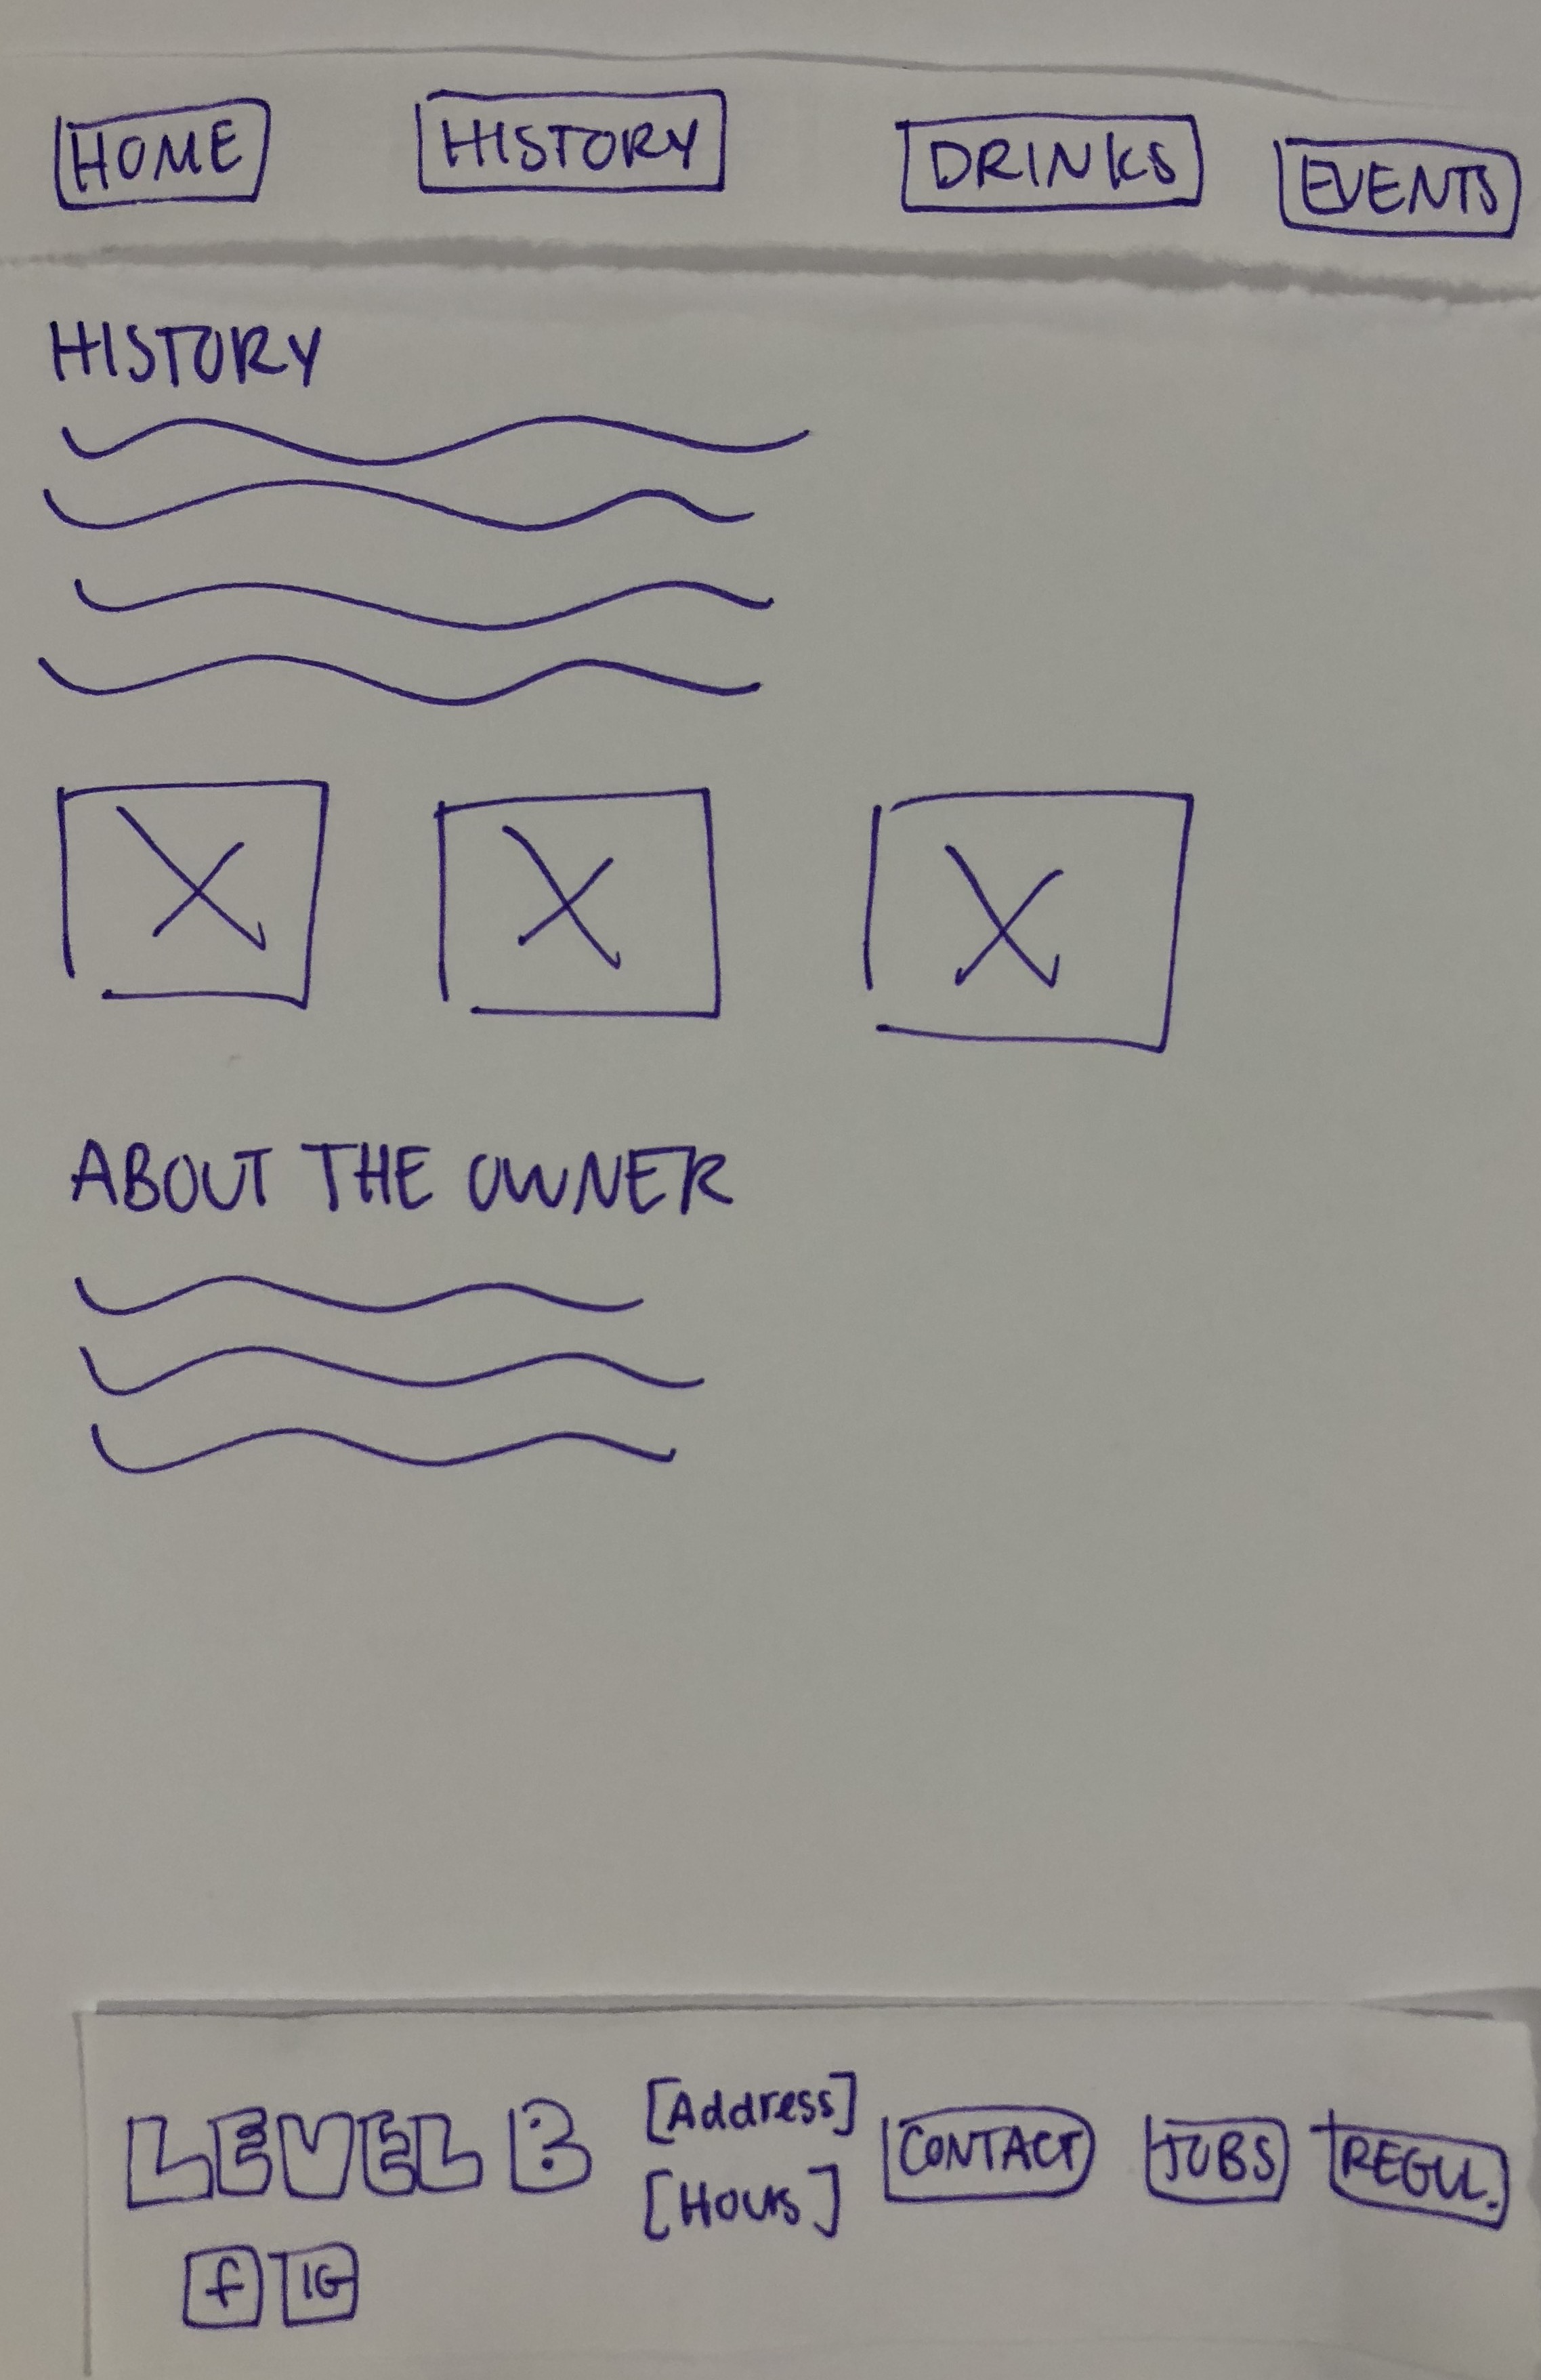 HOME HISTORY DRINKS EVENTS
HISTORY
X X X
ABOUT THE OWNER
LEVEL B [Address] CONTACT JOBS REGU.
[Hours]
f IG